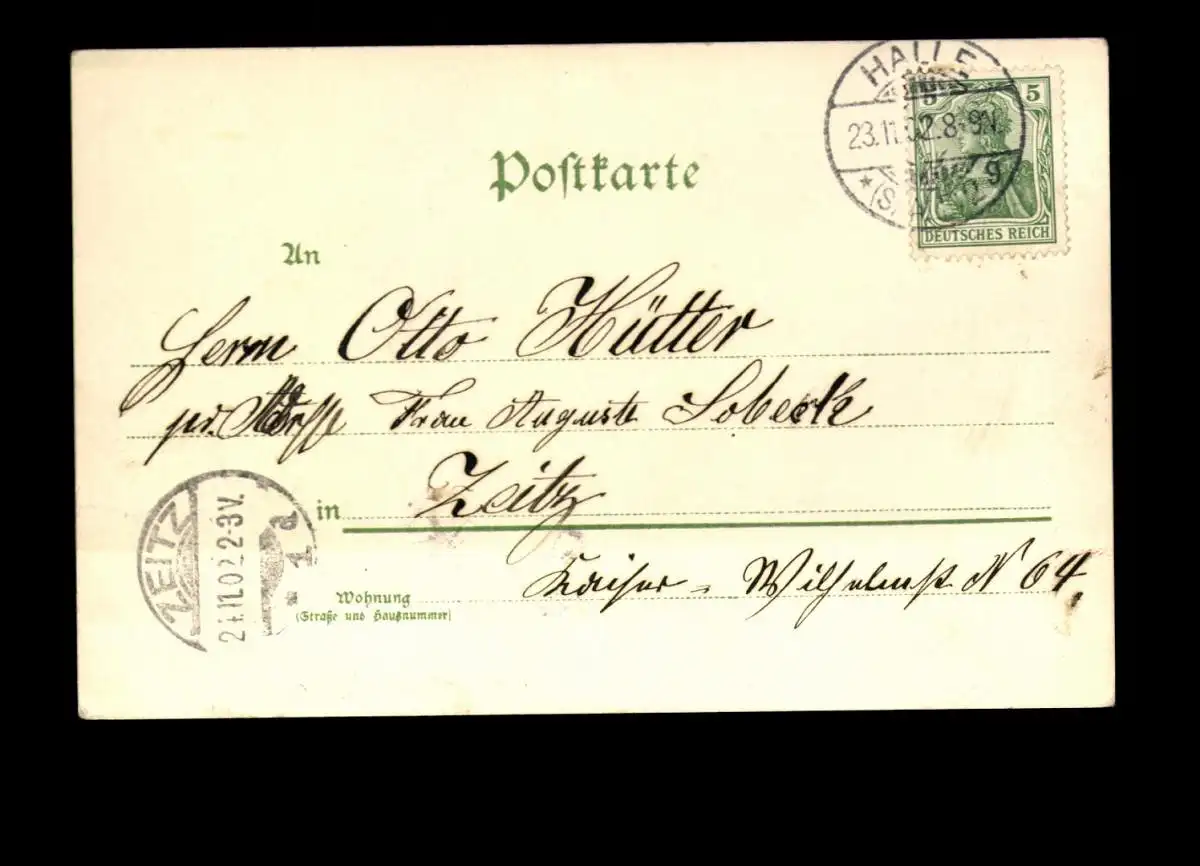 HALLE
23.11.02.8-9V.
*(S
g
5 5
DEUTSCHES REICH
Postkarte
An
Herrn Otto Hütter
pr. Frau Auguste Sobeck
in Zeitz
Kaiser = Wilhelmst N 64.
Wohnung
(Straße und Hausnummer)
ZEITZ
24.11.02 2-3V.
1 a